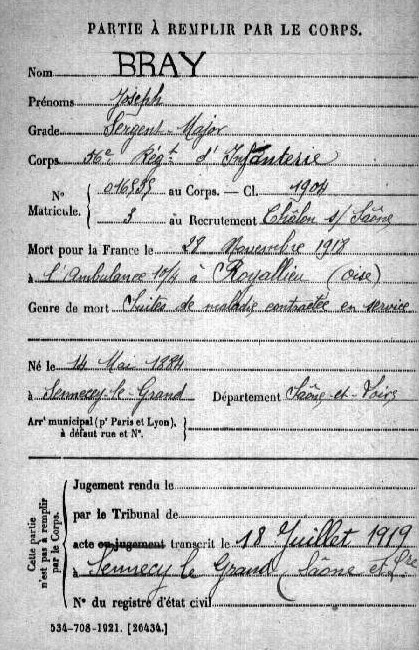 PARTIE À REMPLIR PAR LE CORPS.
Nom BRAY
Prénoms Joseph
Grade Sergent-Major
Corps 56e Régt d'Infanterie
N° Matricule. { 016535 au Corps. — Cl. 1904
3 au Recrutement Châlon s/ Saône
Mort pour la France le 22 Novembre 1918
à l'Ambulance 10/4 à Royallieu (Oise)
Genre de mort Suites de maladie contractée en service
Né le 14 Mai 1884
à Sennecey-le-Grand Département Saône-et-Loire
Arrt municipal (pr Paris et Lyon), à défaut rue et N°.
Cette partie n'est pas à remplir par le Corps.
Jugement rendu le
par le Tribunal de
acte ou jugement transcrit le 18 Juillet 1919
à Sennecey le Grand (Saône et Lre
N° du registre d'état civil
534-708-1921. [26434.]